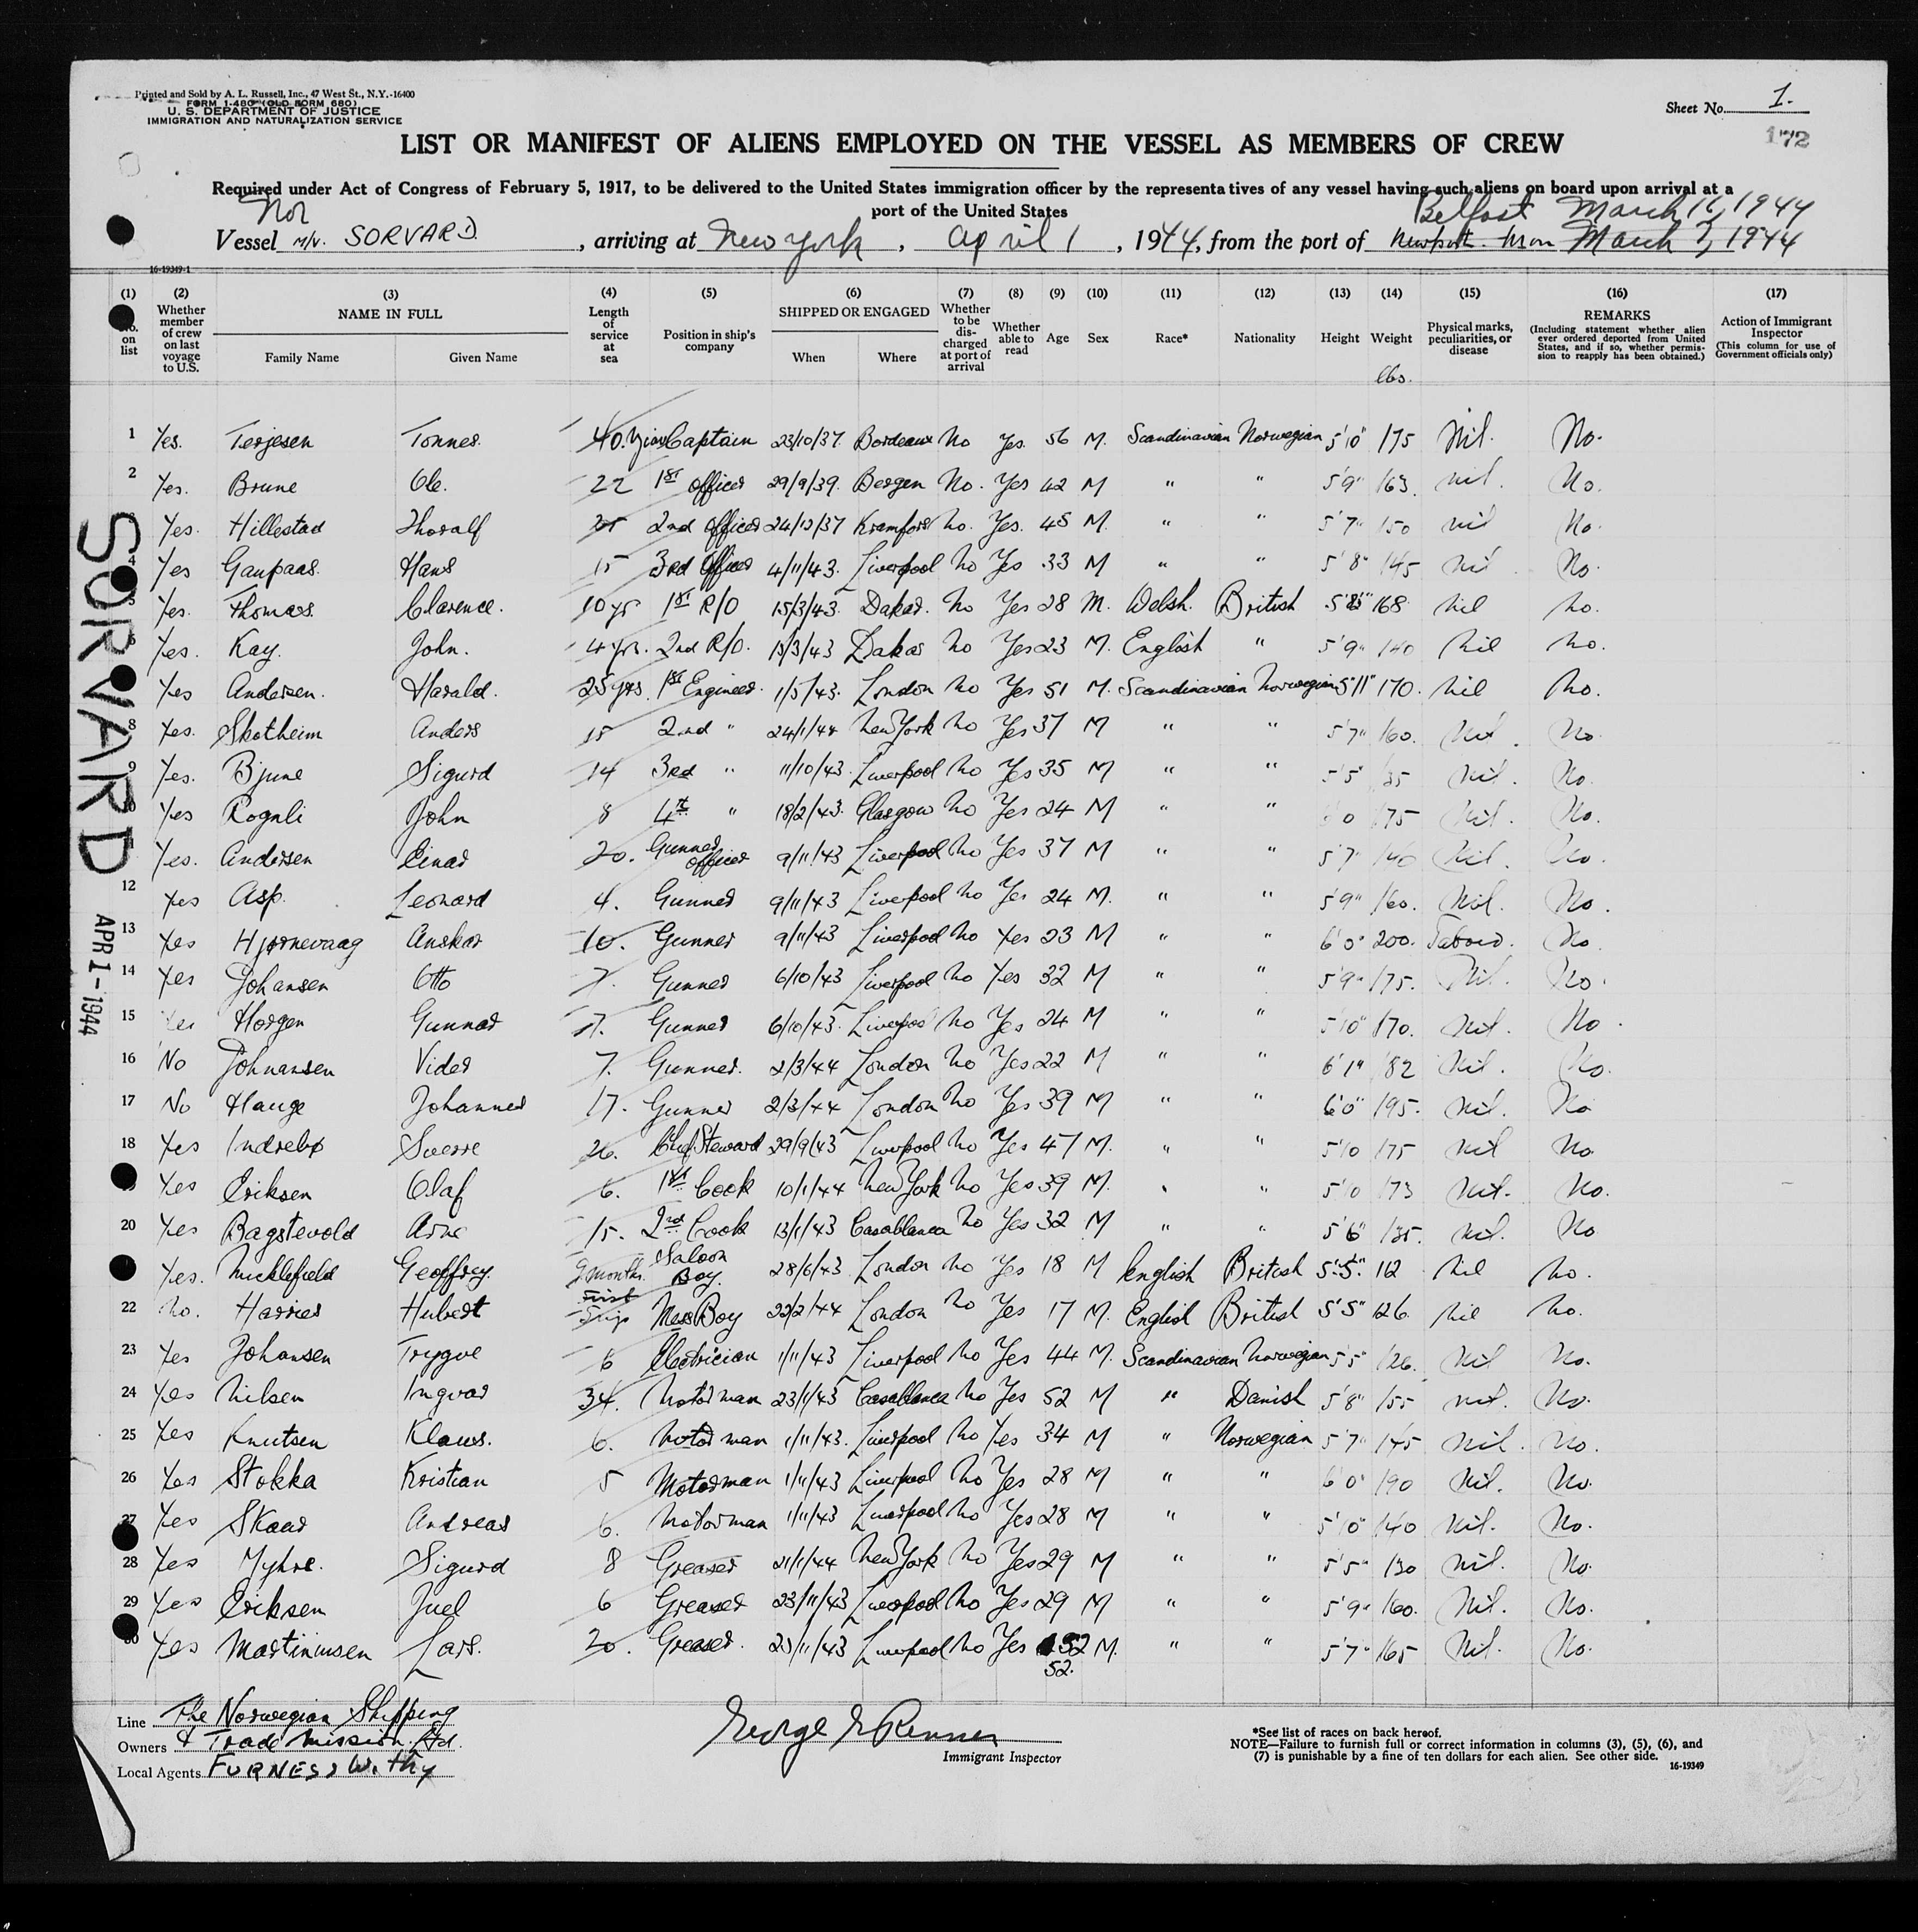 Printed and Sold by A. L. Russell, Inc., 47 West St., N.Y.-16400
FORM I-480 (OLD FORM 680)
U. S. DEPARTMENT OF JUSTICE
IMMIGRATION AND NATURALIZATION SERVICE
Sheet No. 1.
172
LIST OR MANIFEST OF ALIENS EMPLOYED ON THE VESSEL AS MEMBERS OF CREW
Required under Act of Congress of February 5, 1917, to be delivered to the United States immigration officer by the representatives of any vessel having such aliens on board upon arrival at a
port of the United States
Nor Belfast March 16, 1944
Vessel M/V. SORVARD. , arriving at New York , April 1 , 1944, from the port of Newport. Mon March 7, 1944
16-19349-1
(1) No. on list (2) Whether member of crew on last voyage to U.S. (3) NAME IN FULL Family Name Given Name (4) Length of service at sea (5) Position in ship's company (6) SHIPPED OR ENGAGED When Where (7) Whether to be discharged at port of arrival (8) Whether able to read (9) Age (10) Sex (11) Race* (12) Nationality (13) Height (14) Weight lbs. (15) Physical marks, peculiarities, or disease (16) REMARKS (Including statement whether alien ever ordered deported from United States, and if so, whether permission to reapply has been obtained.) (17) Action of Immigrant Inspector (This column for use of Government officials only)
1 Yes. Terjesen Tonnes. 40. Years Captain 23/10/37. Bordeaux No Yes. 56 M. Scandinavian Norwegian 5'10" 175 Nil. No.
2 Yes. Brune Ole. 22 1st officer 29/9/39. Bergen No. Yes 42 M " " 5'9" 163. nil. No.
Yes. Hillestad Thoralf 2nd officer 24/12/37 Kramfors No. Yes. 45 M. " " 5'7" 150 nil No.
4 Yes Gaupaas. Hans 15 3rd Officer 4/11/43. Liverpool No Yes 33 M " " 5'8" 145 nil No.
5 Yes. Thomas. Clarence. 10 yrs 1st R/O 15/3/43. Dakar. No Yes 28 M. Welsh. British 168 nil no.
6 Yes. Kay. John. 4 yrs. 2nd R/O. 15/3/43 Dakar No Yes 23 M. English " 5'9" 140 nil no.
Yes Andersen. Harald. 25 yrs. 1st Engineer. 1/5/43. London No Yes 51 M. Scandinavian Norwegian 5'11" 170. nil no.
8 Yes. Skotheim Anders 15 2nd " 24/1/44 New York No Yes 37 M " " 5'7" 160. Nil. No.
9 Yes. Bjune Sigurd 14 3rd " 11/10/43. Liverpool No Yes 35 M " " 5'5" 135 Nil. No.
10 Yes Rognli John 8 4th " 18/2/43. Glasgow No Yes 24 M " " 6'0 175 Nil. No.
Yes. Andersen Einar 20. Gunner officer 9/11/43 Liverpool No Yes 37 M " " 5'7" 140 Nil. No.
12 Yes Asp. Leonard 4. Gunner 9/11/43 Liverpool No Yes 24 M. " " 5'9" 160. Nil. No.
13 Yes Hjørnevaag Anskar 10. Gunner 9/11/43 Liverpool No Yes 23 M " " 6'0" 200. No.
14 Yes Johansen Otto 7. Gunner 6/10/43 Liverpool No Yes 32 M " " 5'9" 175. Nil. No.
15 Yes Horgen Gunnar 7. Gunner 6/10/43. Liverpool No Yes 24 M " " 5'10" 170. Nil. No.
16 No Johnansen Vidar 7. Gunner. 2/3/44 London No Yes 22 M " " 6'1" 182 Nil. No.
17 No Hauge Johannes 17. Gunner 2/3/44 London No Yes 39 M " " 6'0" 195. Nil. No
18 Yes Indrebø Sverre 26. Chief Steward 29/9/43 Liverpool No Yes 47 M. " " 5'10 175 Nil No.
Yes Eriksen Olaf 6. 1st Cook 10/1/44 New York No Yes 39 M. " " 5'10 173 Nil. No.
20 Yes Bagstevold Arne 15. 2nd Cook 13/1/43 Casablanca No Yes 32 M " " 5'6" 135. Nil. No
Yes. Micklefield Geoffrey. 9 months. Saloon Boy. 28/6/43. London No Yes 18 M English British 5'5" 112 nil no.
22 No. Harries Hubert First Trip Mess Boy 22/2/44 London No Yes 17 M. English British 5'5" 126. nil no.
23 Yes Johansen Trygve 6 Electrician 1/11/43 Liverpool No Yes 44 M. Scandinavian Norwegian 5'5" 126. Nil No.
24 Yes Nilsen Ingvar 34. Motorman 23/1/43 Casablanca No Yes 52 M " Danish 5'8" 155 Nil. No.
25 Yes Knutsen Klaus. 6. Motorman 1/11/43. Liverpool No Yes 34 M " Norwegian 5'7" 145 Nil. No.
26 Yes Stokka Kristian 5 Motorman 1/11/43 Liverpool No Yes 28 M " " 6'0" 190 Nil. No.
27 Yes Skaar Andreas 6. Motorman 1/11/43 Liverpool No Yes 28 M " " 5'10" 140 Nil. No.
28 Yes Myhre. Sigurd 8 Greaser 21/1/44 New York No Yes 29 M " " 5'5" 130 Nil. No.
29 Yes Eriksen Juel 6 Greaser 23/11/43 Liverpool No Yes 29 M " " 5'9" 160. Nil. No.
30 Yes Martinusen Lars. 20. Greaser. 23/11/43 Liverpool No Yes 52 M. " " 5'7" 165 Nil. No.
52.
SORVARD
APR 1 - 1944
Line The Norwegian Shipping
Owners & Trade Mission. Ltd.
Local Agents FURNESS Withy
George Renner
Immigrant Inspector
*See list of races on back hereof.
NOTE—Failure to furnish full or correct information in columns (3), (5), (6), and
(7) is punishable by a fine of ten dollars for each alien. See other side.
16-19349